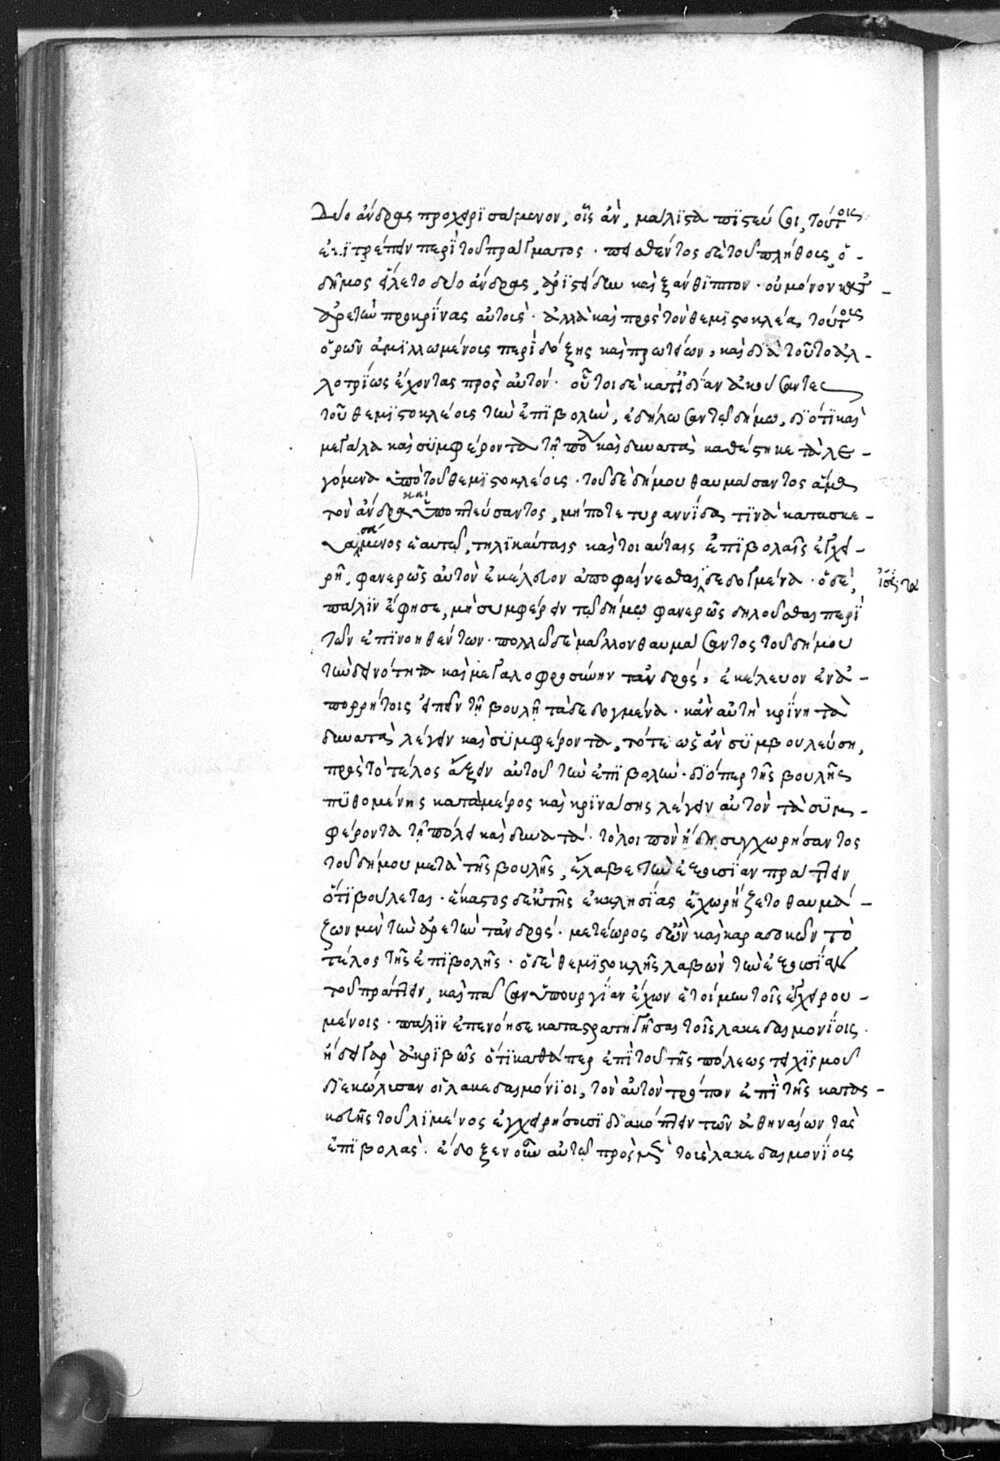 δύο ἄνδρας προχειρισαμένον, οἷς ἂν, μάλιστα πιστεύσῃ, τούτοις
ἐπιτρέπειν περὶ τοῦ πράγματος· πεισθέντος δὲ τοῦ πλήθους, ὁ
δῆμος εἵλετο δύο ἄνδρας, ἀριστείδην καὶ ξάνθιππον· οὐ μόνον κατ'
ἀρετὴν προκρίνας αὐτοὺς· ἀλλὰ καὶ πρὸς τὸν θεμιστοκλέα, τούτους
ὁρῶν ἁμιλλωμένους περὶ δόξης καὶ πρωτείων, καὶ διὰ τοῦτο ἀλ-
λοτρίως ἔχοντας πρὸς αὐτόν· οὗτοι δὲ κατιδίαν ἀκούσαντες
τοῦ θεμιστοκλέους τὴν ἐπιβολὴν, ἐδήλωσαν τῷ δήμῳ, διότι καὶ
μεγάλα καὶ συμφέροντα τῇ πόλ καὶ δυνατὰ καθέστηκε τὰ λε-
γόμενα ὑπὸ τοῦ θεμιστοκλέους· τοῦ δὲ δήμου θαυμάσαντος ἅμα
τὸν ἄνδρα καὶ ὑποπτεύσαντος, μήποτε τυραννίδα τινὰ κατασκε-
υασάμενος ἑαυτῷ, τηλικαύταις καὶ τοιαύταις ἐπιβολαῖς ἐγχει-
ρῇ, φανερῶς αὐτὸν ἐκέλευον ἀποφαίνεσθαι δεδογμένα· ὁ δὲ,
πάλιν ἔφησε, μὴ συμφέρειν τῷ δήμῳ φανερῶς δηλοῦσθαι περὶ
τῶν ἐπινοηθέντων· πολλῷ δὲ μᾶλλον θαυμάσαντος τοῦ δήμου
τὴν δεινότητα καὶ μεγαλοφροσύνην τἀνδρός, ἐκέλευον ἐν ἀ-
πορρήτοις εἰπεῖν τῇ βουλῇ τὰ δεδογμένα· κἂν αὐτὴ κρίνῃ τὰ
δυνατὰ λέγειν καὶ συμφέροντα, τότε ὡς ἂν συμβουλεύσῃ,
πρὸς τὸ τέλος ἄξειν αὐτοῦ τὴν ἐπιβολήν· διόπερ τῆς βουλῆς
πυθομένης κατὰ μέρος καὶ κρινάσης λέγειν αὐτὸν τὰ συμ-
φέροντα τῇ πόλει καὶ δυνατά· τὸ λοιπὸν ἤδη συγχωρήσαντος
τοῦ δήμου μετὰ τῆς βουλῆς, ἔλαβε τὴν ἐξουσίαν πράττειν
ὅτι βούλεται· ἕκαστος δ' ἐκ τῆς ἐκκλησίας ἐχωρίζετο θαυμά-
ζων μὲν τὴν ἀρετὴν τἀνδρός· μετέωρος δ' ὢν καὶ καραδοκῶν τὸ
τέλος τῆς ἐπιβολῆς· ὁ δὲ θεμιστοκλῆς λαβὼν τὴν ἐξουσίαν
τοῦ πράττειν, καὶ πᾶσαν ὑπουργίαν ἔχων ἑτοίμην τοῖς ἐγχειρου-
μένοις· πάλιν ἐπενόησε καταστρατηγῆσαι τοὺς λακεδαιμονίους·
ᾔδει γὰρ ἀκριβῶς ὅτι καθάπερ ἐπὶ τοῦ τῆς πόλεως τειχισμοῦ
διεκώλυσαν οἱ λακεδαιμόνιοι, τὸν αὐτὸν τρόπον ἐπὶ τῆς κατασ-
κευῆς τοῦ λιμένος ἐγχειρήσουσι διακόπτειν τῶν ἀθηναίων τὰς
ἐπιβολάς· ἔδοξεν οὖν αὐτῷ πρὸς μὲν τοὺς λακεδαιμονίους